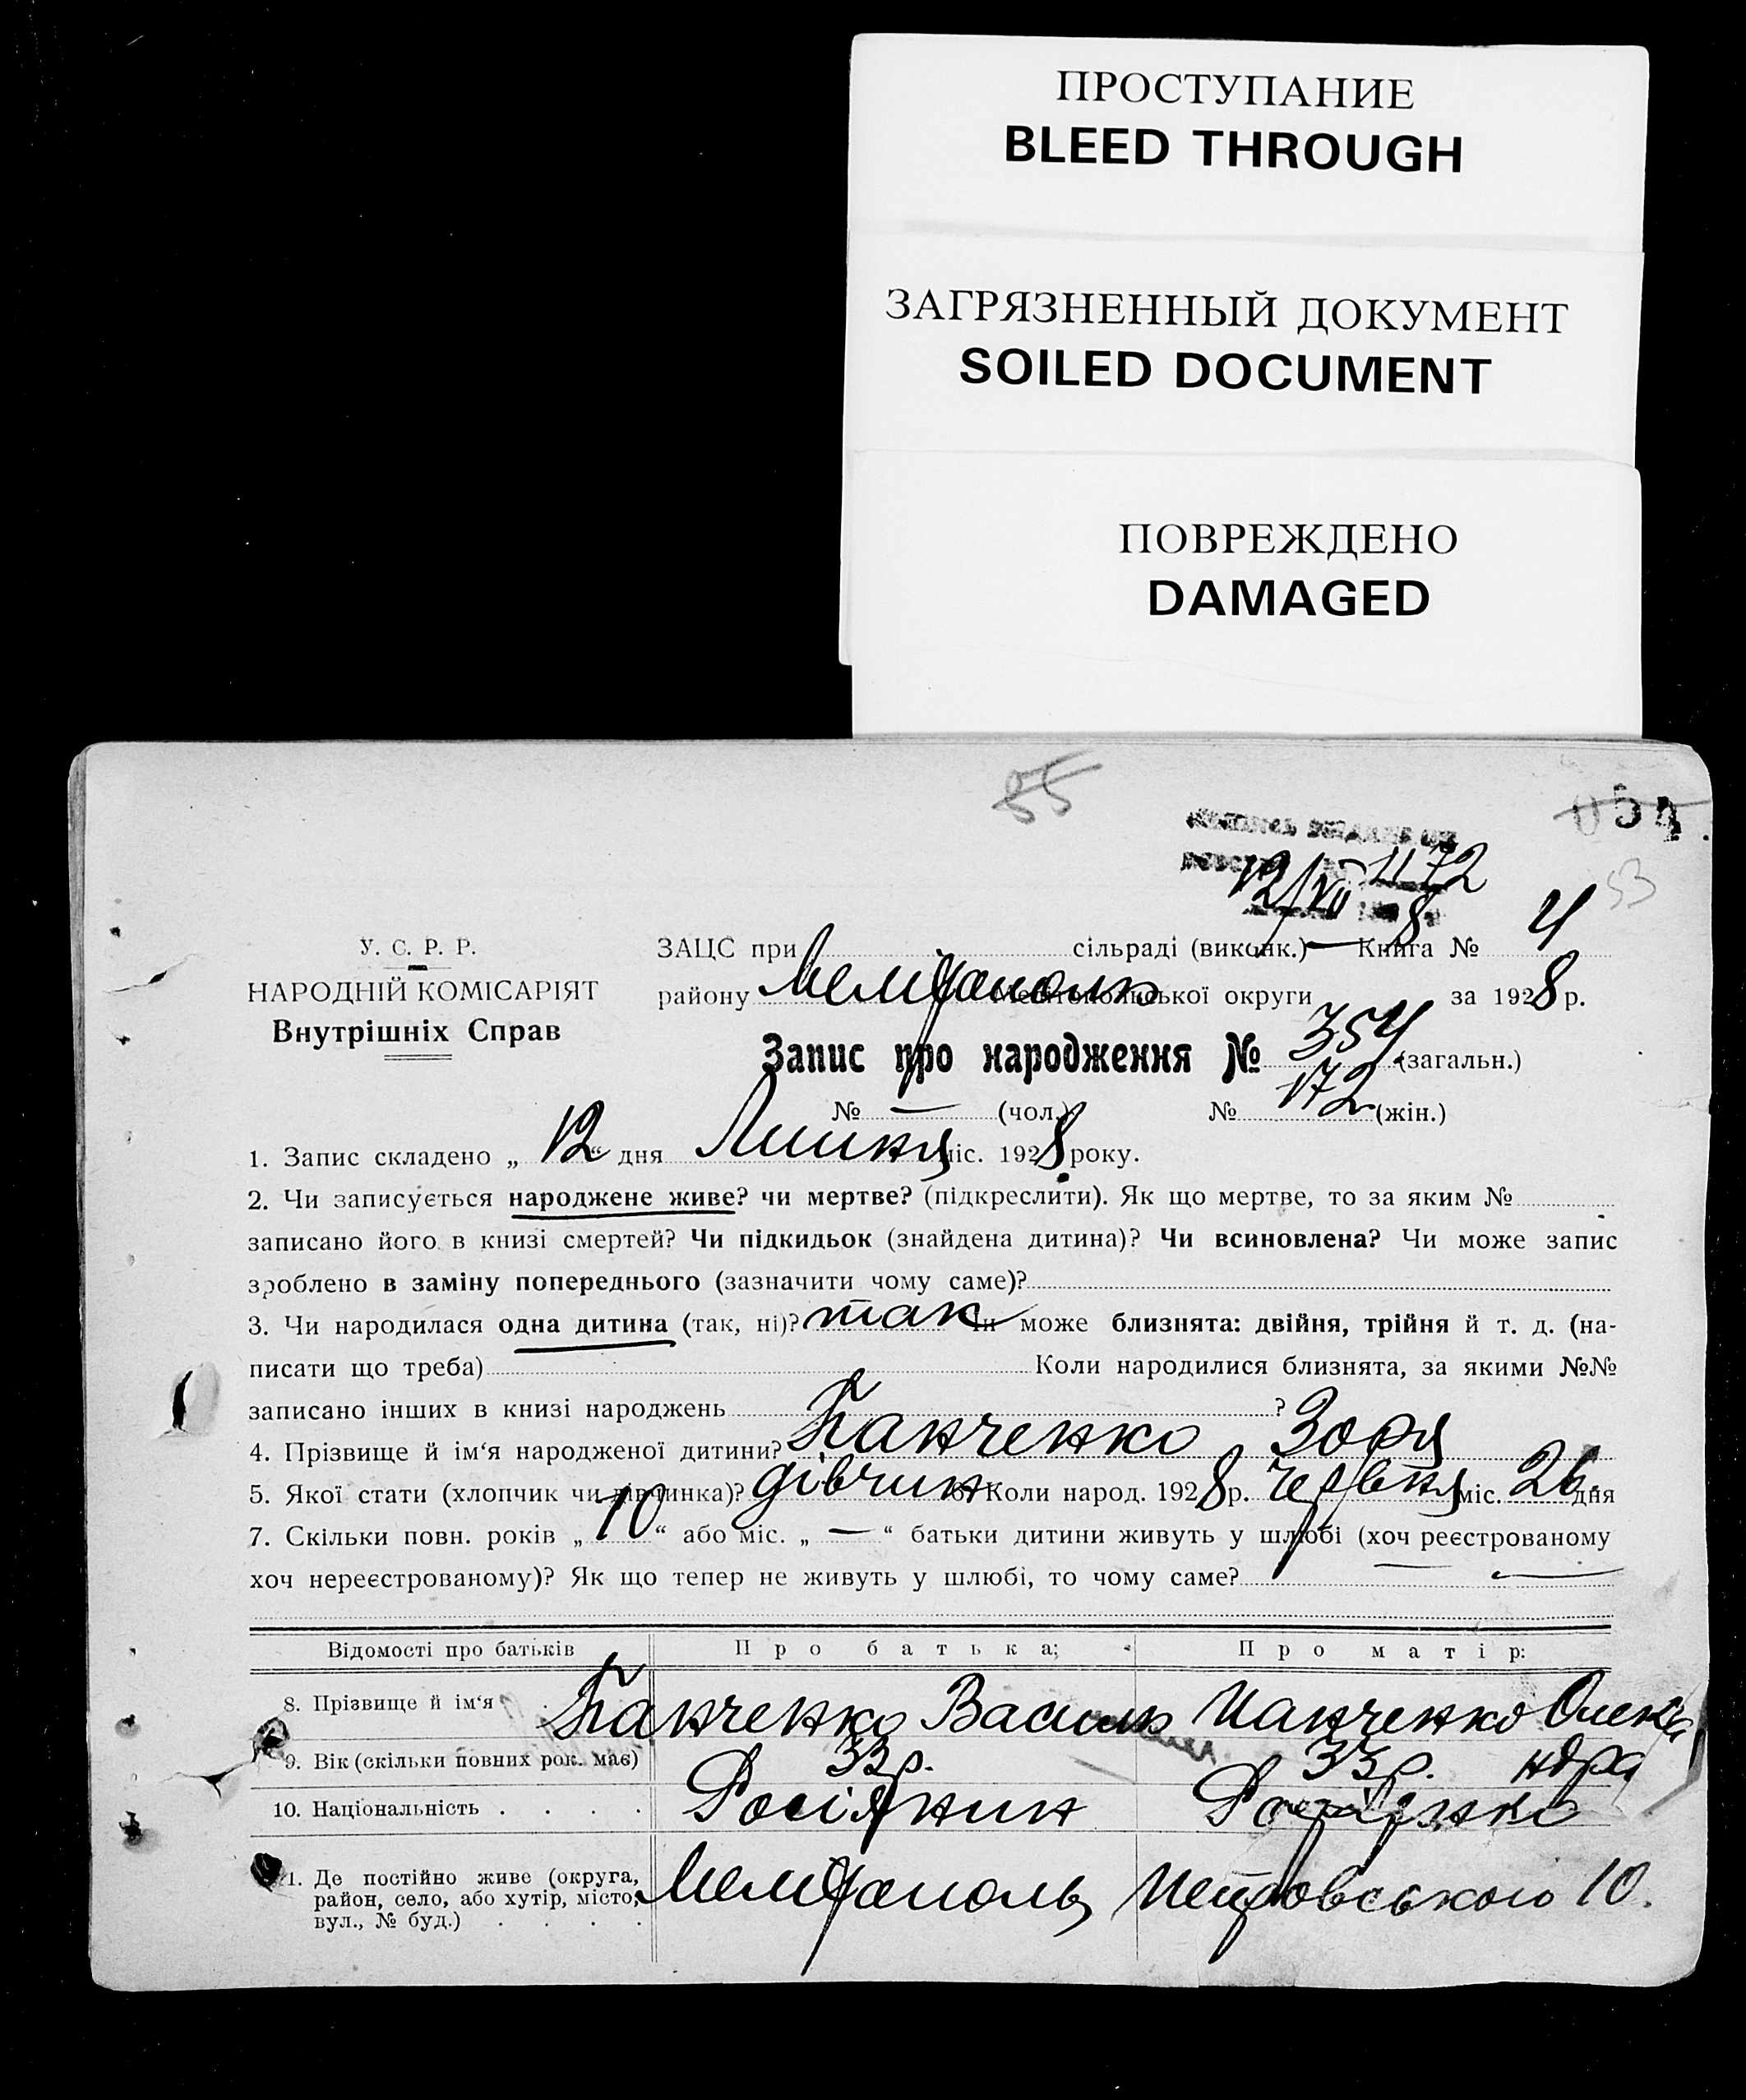 ПРОСТУПАНИЕ
BLEED THROUGH
ЗАГРЯЗНЕННЫЙ ДОКУМЕНТ
SOILED DOCUMENT
ПОВРЕЖДЕНО
DAMAGED
85
054
53
12/VII 1172
8
У. С. Р. Р.
НАРОДНІЙ КОМІСАРІЯТ
Внутрішніх Справ
ЗАЦС при сільраді (виконк.) — Книга № 4
району Мелітополь Мелітопольської округи за 1928 р.
Запис про народження № 354 (загальн.)
№ — (чол.) № 172 (жін.)
1. Запис складено „ 12 “ дня Липня міс. 1928 року.
2. Чи записується народжене живе? чи мертве? (підкреслити). Як що мертве, то за яким №
записано його в книзі смертей? Чи підкидьок (знайдена дитина)? Чи всиновлена? Чи може запис
зроблено в заміну попереднього (зазначити чому саме)?
3. Чи народилася одна дитина (так, ні)? так Чи може близнята: двійня, трійня й т. д. (на-
писати що треба) Коли народилися близнята, за якими №№
записано інших в книзі народжень ?
4. Прізвище й ім‘я народженої дитини? Панченко Зоря
5. Якої стати (хлопчик чи дівчинка)? дівчин 6. Коли народ. 1928 р. червня міс. 26 дня
7. Скільки повн. років „ 10 “ або міс. „ — “ батьки дитини живуть у шлюбі (хоч реєстрованому
хоч нереєстрованому)? Як що тепер не живуть у шлюбі, то чому саме?
Відомості про батьків Про батька: Про матір:
8. Прізвище й ім‘я Панченко Василь Панченко Олекса
ндра
9. Вік (скільки повних рок. має) 33 р. 33 р.
10. Національність . . . . Росіянин Росіянка
11. Де постійно живе (округа,
район, село, або хутір, місто,
вул., № буд.) . . . .
Мелітополь Петровського 10.